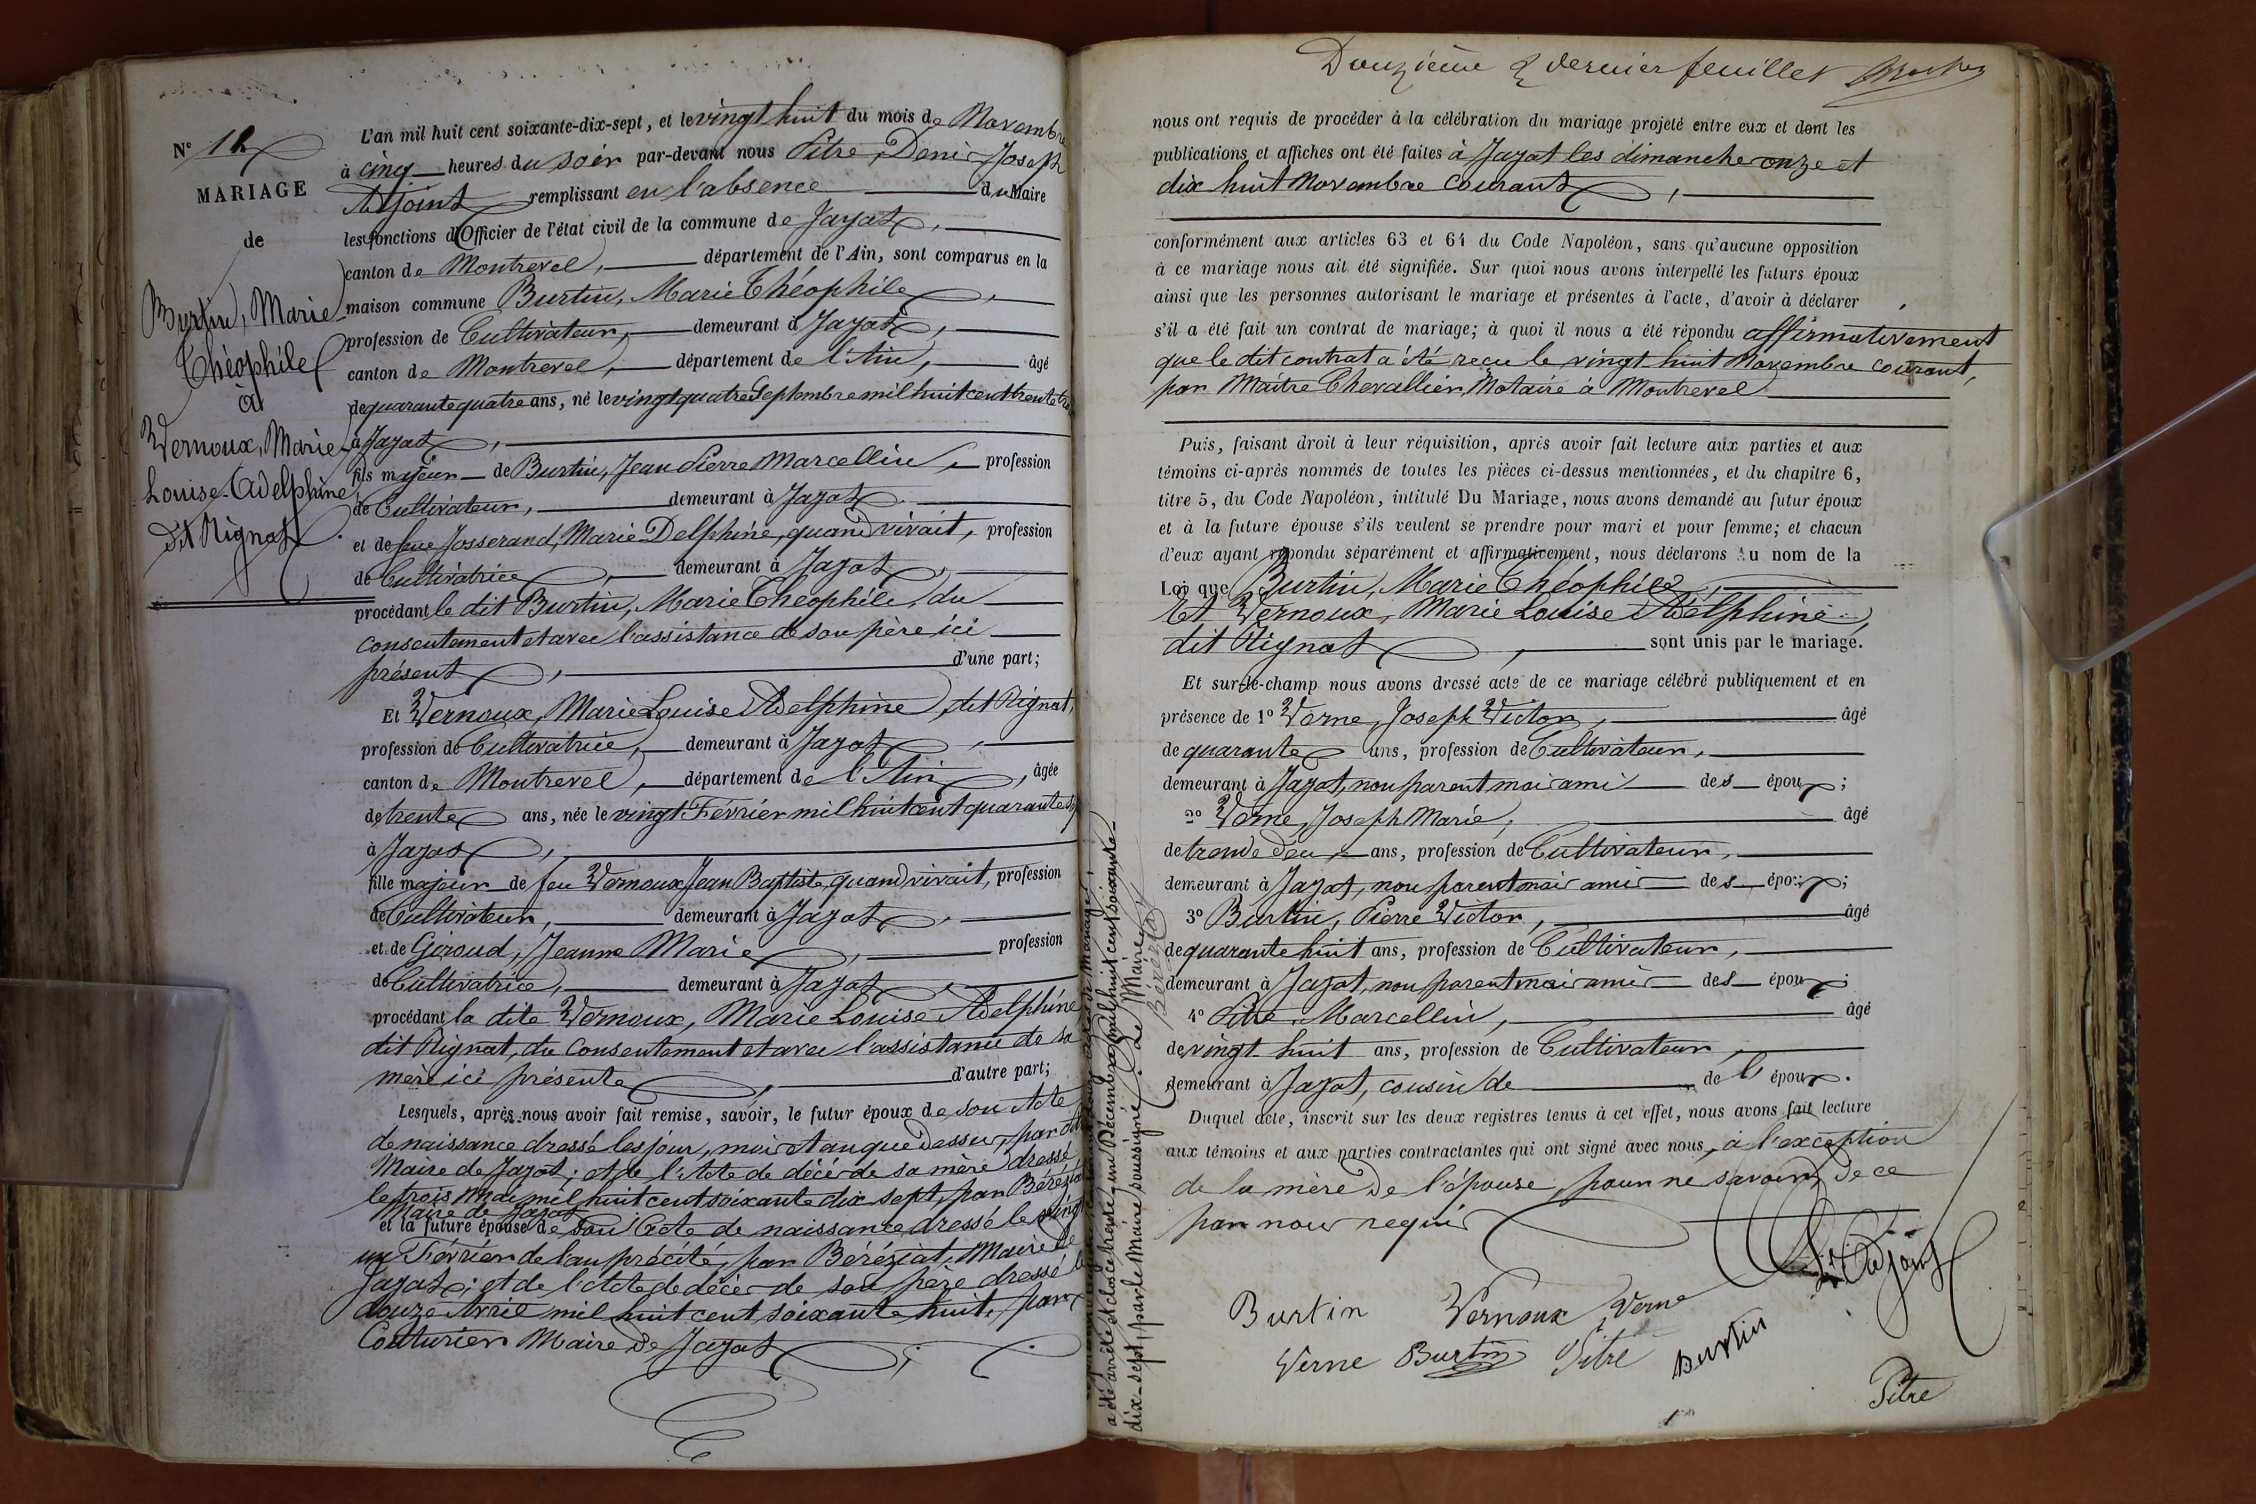 N° 12
MARIAGE
de
Burtin, Marie
Théophile
à
Vernoux, Marie
Louise-Adelphine
dit Rignat
L'an mil huit cent soixante-dix-sept, et le vingt huit du mois de Novembre
à cinq heures du soir par-devant nous Pitre, Denis Joseph
Adjoint remplissant en l'absence du Maire
les fonctions d'Officier de l'état civil de la commune de Jayat,
canton de Montrevel, département de l'Ain, sont comparus en la
maison commune Burtin, Marie Théophile,
profession de Cultivateur, demeurant à Jayat,
canton de Montrevel, département de l'Ain, âgé
de quarante quatre ans, né le vingt quatre Septembre mil huit cent trente
à Jayat,
fils majeur de Burtin, Jean Pierre Marcellin, profession
de Cultivateur, demeurant à Jayat
et de feue Josserand, Marie Delphine, quand vivait, profession
de Cultivatrice, demeurant à Jayat,
procédant le dit Burtin, Marie Théophile, du
consentement et avec l'assistance de son père ici
présent, d'une part;
Et Vernoux, Marie Louise Adelphine, dit Rignat,
profession de Cultivatrice, demeurant à Jayat,
canton de Montrevel, département de l'Ain, âgée
de trente ans, née le vingt Février mil huit cent quarante
à Jayat,
fille majeur de feu Vernoux Jean Baptiste, quand vivait, profession
de Cultivateur, demeurant à Jayat,
et de Giroud, Jeanne Marie, profession
de Cultivatrice, demeurant à Jayat,
procédant la dite Vernoux, Marie Louise Adelphine
dit Rignat, du consentement et avec l'assistance de sa
mère ici présente, d'autre part;
Lesquels, après nous avoir fait remise, savoir, le futur époux de son Acte
de naissance dressé les jour, mois et an que dessus, par
Maire de Jayat; et de l'Acte de décès de sa mère dressé
le trois Mai mil huit cent soixante dix sept, par Béréziat
Maire de Jayat
et la future épouse de son Acte de naissance dressé le vingt
un Février de l'an précité, par Béréziat, Maire de
Jayat; et de l'Acte de décès de son père dressé le
douze Avril mil huit cent soixante huit, par
Couturier Maire de Jayat;
a été arrêté et clos ce trente un Décembre mil huit cent soixante-
dix-sept, par le Maire soussigné. Le Maire,
Béréziat
Douzième & dernier feuillet
nous ont requis de procéder à la célébration du mariage projeté entre eux et dont les
publications et affiches ont été faites à Jayat les dimanche onze et
dix huit Novembre courant,
conformément aux articles 63 et 64 du Code Napoléon, sans qu'aucune opposition
à ce mariage nous ait été signifiée. Sur quoi nous avons interpellé les futurs époux
ainsi que les personnes autorisant le mariage et présentes à l'acte, d'avoir à déclarer
s'il a été fait un contrat de mariage; à quoi il nous a été répondu affirmativement
que le dit contrat a été reçu le vingt huit Novembre courant,
par Maître Chevallier, Notaire à Montrevel
Puis, faisant droit à leur réquisition, après avoir fait lecture aux parties et aux
témoins ci-après nommés de toutes les pièces ci-dessus mentionnées, et du chapitre 6,
titre 5, du Code Napoléon, intitulé Du Mariage, nous avons demandé au futur époux
et à la future épouse s'ils veulent se prendre pour mari et pour femme; et chacun
d'eux ayant répondu séparément et affirmativement, nous déclarons au nom de la
Loi que Burtin, Marie Théophile,
Et Vernoux, Marie Louise Adelphine,
dit Rignat, sont unis par le mariage.
Et sur-le-champ nous avons dressé acte de ce mariage célébré publiquement et en
présence de 1° Verne, Joseph Victor, âgé
de quarante ans, profession de Cultivateur,
demeurant à Jayat, non parent mais ami des époux;
2° Verne, Joseph Marie, âgé
de trente deux ans, profession de Cultivateur,
demeurant à Jayat, non parent mais amis des époux;
3° Burtin, Pierre Victor, âgé
de quarante huit ans, profession de Cultivateur,
demeurant à Jayat, non parent mais amis des époux;
4° Pitre, Marcellin, âgé
de vingt-huit ans, profession de Cultivateur,
demeurant à Jayat, cousin de de l' époux.
Duquel acte, inscrit sur les deux registres tenus à cet effet, nous avons fait lecture
aux témoins et aux parties contractantes qui ont signé avec nous, à l'exception
de la mère de l'épouse, pour ne savoir, de ce
par nous requis
L'Adjoint
Burtin Vernoux Verne
Verne Burtin Pitre Burtin
Pitre